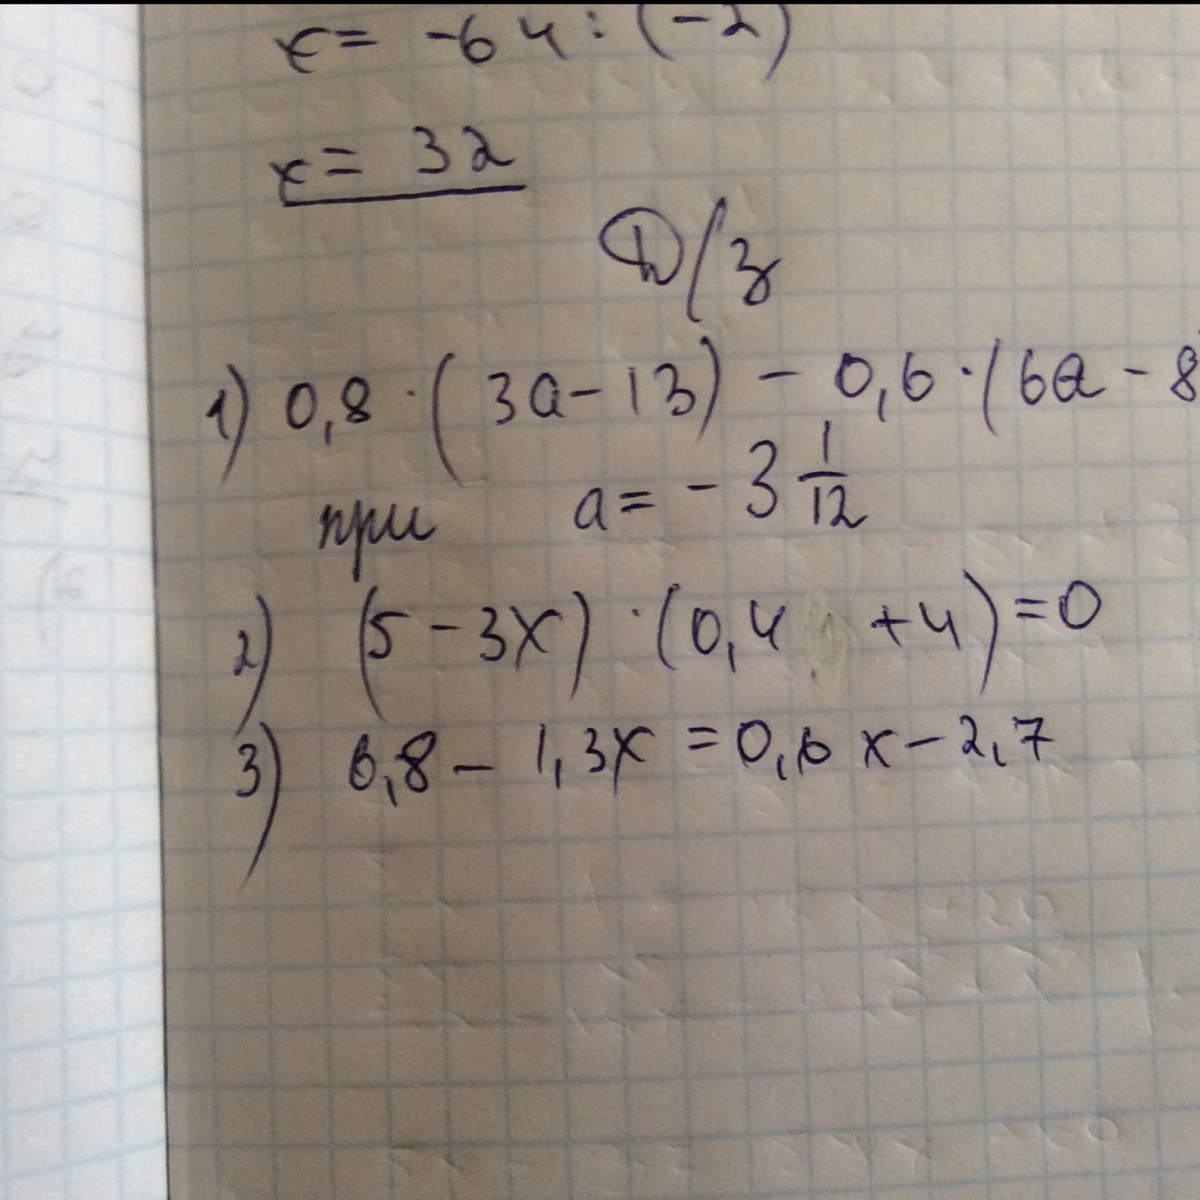 x = -64 : (-2)
x = 32
Д/з
1) 0,8 · (3a - 13) - 0,6 · (6a - 8
при a = -3 1/12
2) (5 - 3x) · (0,4 +4) = 0
3) 6,8 - 1,3x = 0,6x - 2,7